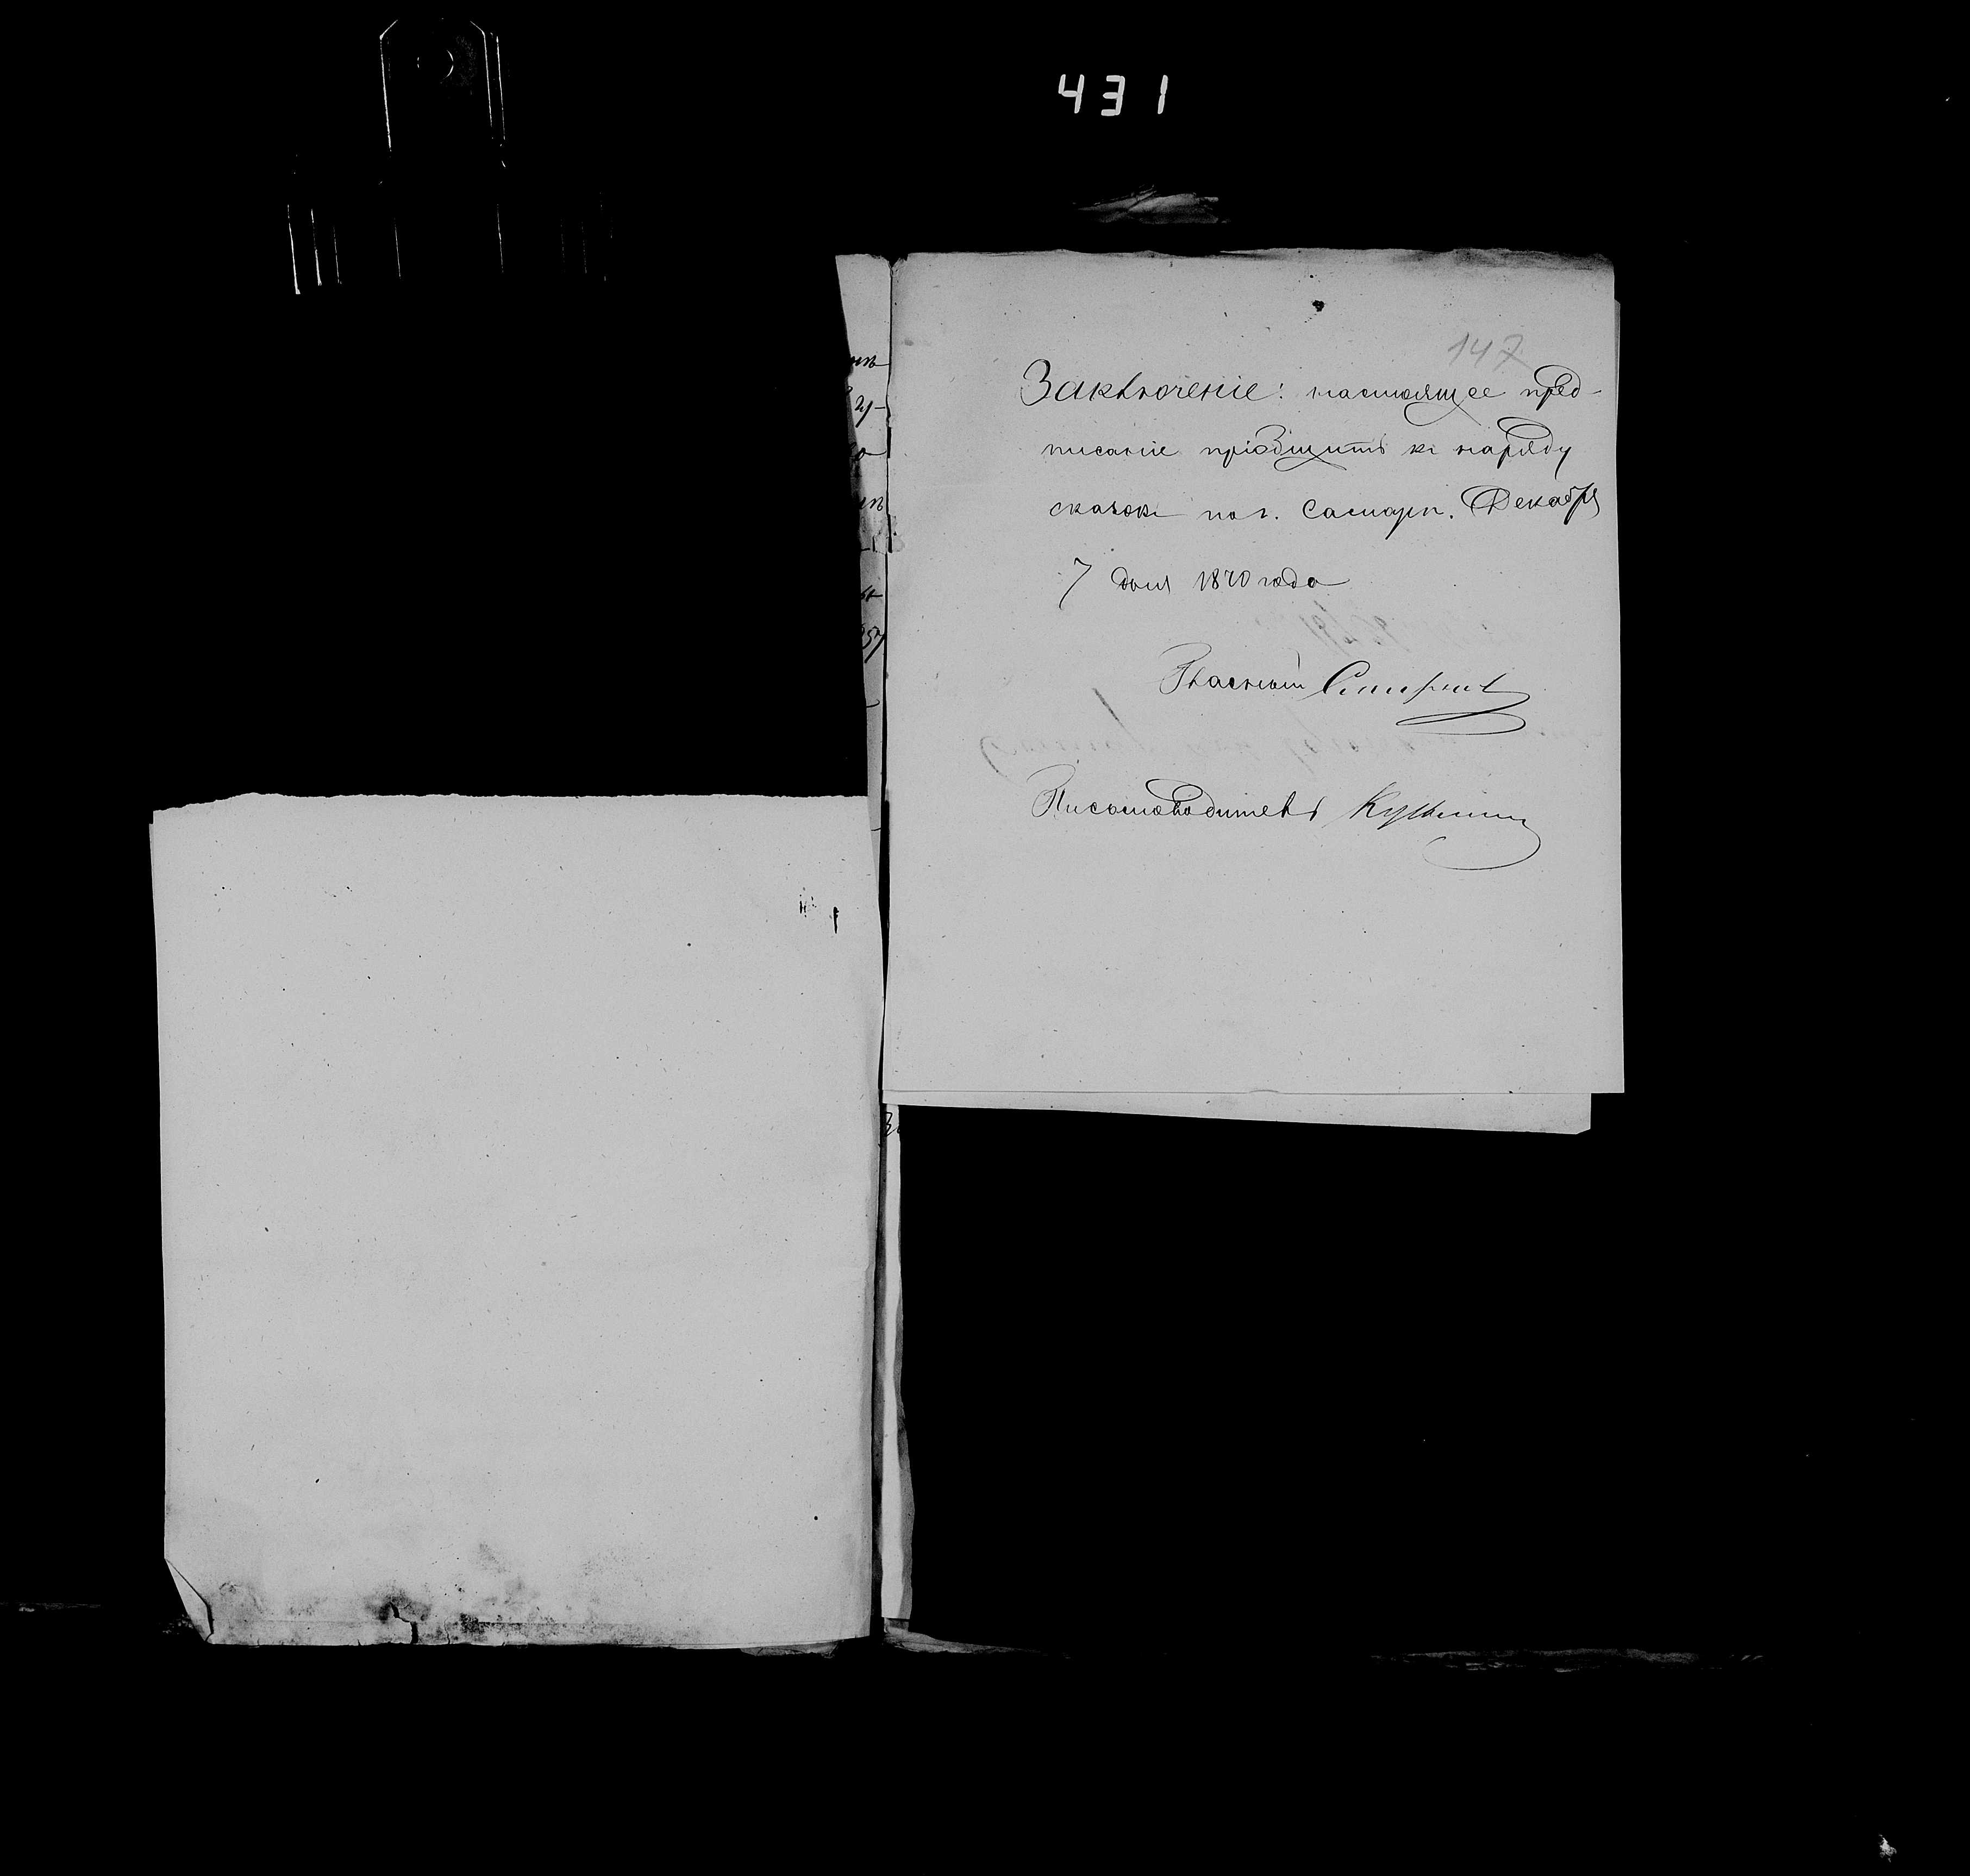 431
147
Заключеніе: настоящее пред-
писаніе пріобщить къ наряду
сказокъ по г. Самарѣ. Декабря
7 дня 1870 года
Гласный Смирнов
Письмоводитель